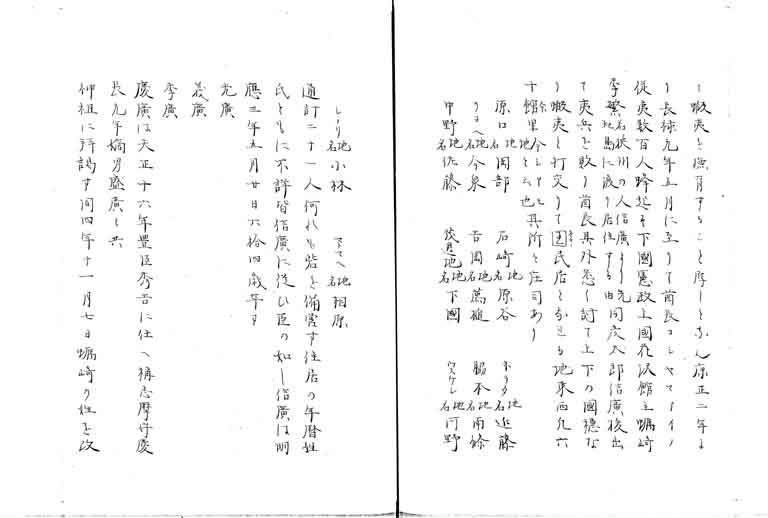 蝦夷を撫育すること厚しとなん康正二年よ
り長禄元年五月に至りて酋長コシヤマアイノ
従夷数百人蜂起す下國憲政上國花沢館主蠣崎
季繁若狭州の人信廣より先此島に渡り居住する由同武太郎信廣後出
て夷兵を敗り酋長其外悉く討て上下の國穏な
り蝦夷と打交りて國民居となせる地東西凡六
十餘里今しりと館地と云也其所々庄司あり
原口名地岡部 石崎名地原谷 ネツタ名地近藤
リヨヘ名地今泉 吉岡名地蔦槌 脇本名地南條
中野名地佐藤 茂邊地名地下國 ウスケシ名地河野
しノリ名地小林 マツマヘ名地相原
通計二十一人何れも砦を備営す住居の年暦姓
氏ともに不詳皆信廣に従ひ臣の如し信廣は明
應三年五月廿日六拾四歳卒す
光廣
義廣
季廣
慶廣は天正十六年豊臣秀吉に仕へ稱志摩守慶
長九年嫡男盛廣と共
神祖に拝謁す同四年十一月七日蠣崎の姓を改